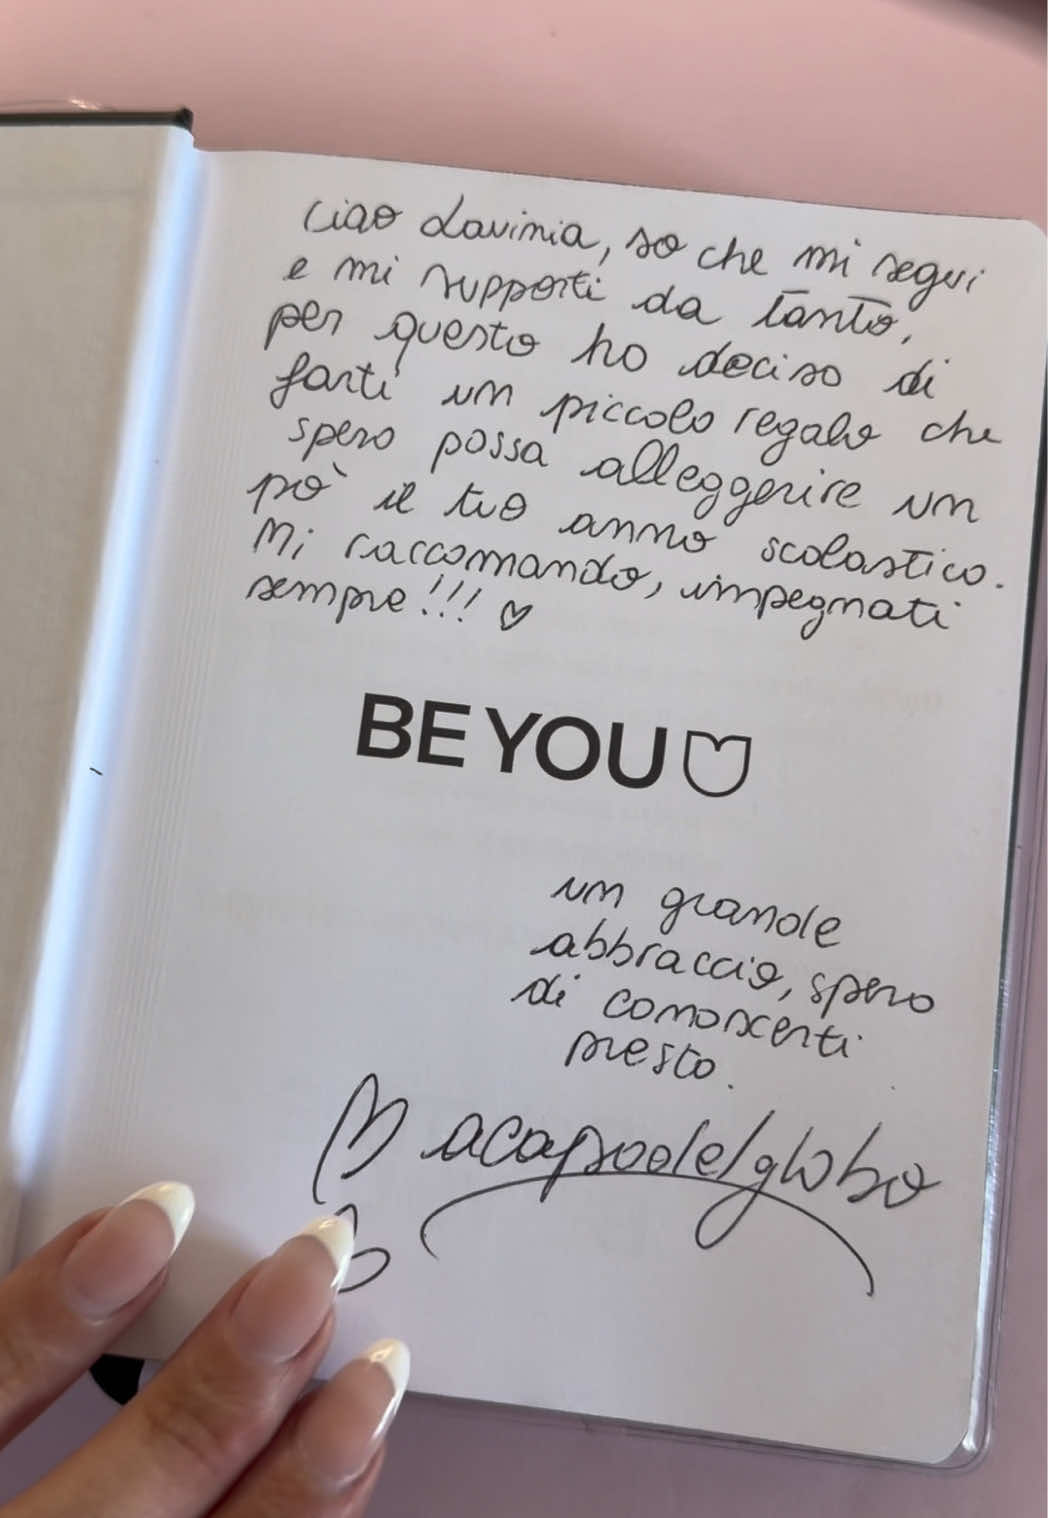 Ciao Lavinia, so che mi segui
e mi supporti da tanto,
per questo ho deciso di
farti un piccolo regalo che
spero possa alleggerire un
pò il tuo anno scolastico.
Mi raccomando, impegnati
sempre!!! ♡
BE YOU
un grande
abbraccio, spero
di conoscerti
presto.
Macapodelglobo